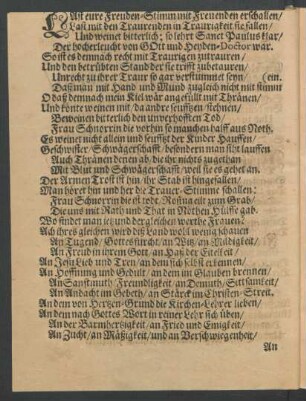 LAst eure Freuden-Stimm mit Freuenden erschallen/
Last mit den Traurenden in Traurigkeit sie fallen/
Und weinet bitterlich; so lehrt Sanct Paulus klar/
Der hocherleucht von GOtt und Heyden-Doctor war.
So ist es demnach recht mit Traurigen zu trauren/
Und den betrübten Stand der sie trifft zubetauren/
Unrecht zu ihrer Traur so gar verstummet seyn/
Daß man mit Hand und Mund zugleich nicht mit stimmt (ein.
O daß demnach mein Kiel wär angefüllt mit Thränen/
Und könte weinen mit/ da andre seufftzen/ stehnen/
Beweinen bitterlich den unverhofften Tod/
Frau Schnorrin die vorhin so manchen halff aus Noth.
Es weinet nicht allein und seufftzt der Kinder Hauffen/
Geschwister/ Schwägerschafft/ besondern man siht lauffen
Auch Thränen denen ab/ die ihr nichts zugethan
Mit Blut und Schwägerschafft/ weil sie es gehet an.
Der Armen Trost ist hin/ ihr Stab ist hingefallen/
Man höret hin und her die Trauer-Stimme schallen:
Frau Schnorrin die ist todt. Rosina eilt zum Grab/
Die uns mit Rath und That in Nöthen Hülffe gab.
Wo findet man itzund dergleichen werthe Frauen?
Ach ihres gleichen wird diß Land wohl wenig schauen
An Tugend/ Gottesfurcht/ an Witz/ an Mildigkeit/
An Freud in ihrem Gott/ an Haß der Eitelkeit/
An JEsu Lieb und Treu/ an dem sich selbst erkennen/
An Hoffnung und Gedult/ an dem im Glauben brennen/
An Sanfftmuth/ Freundligkeit/ an Demuth/ Sittsamkeit/
An Andacht im Gebeth/ an Stärck im Christen-Streit.
An dem von Hertzen-Grund die Kirchen-Lehrer lieben/
An dem nach Gottes Wort in reiner Lehr sich üben/
An der Barmhertzigkeit/ an Fried und Einigkeit/
An Zucht/ an Mäßigkeit/ und an Verschwiegenheit/
An